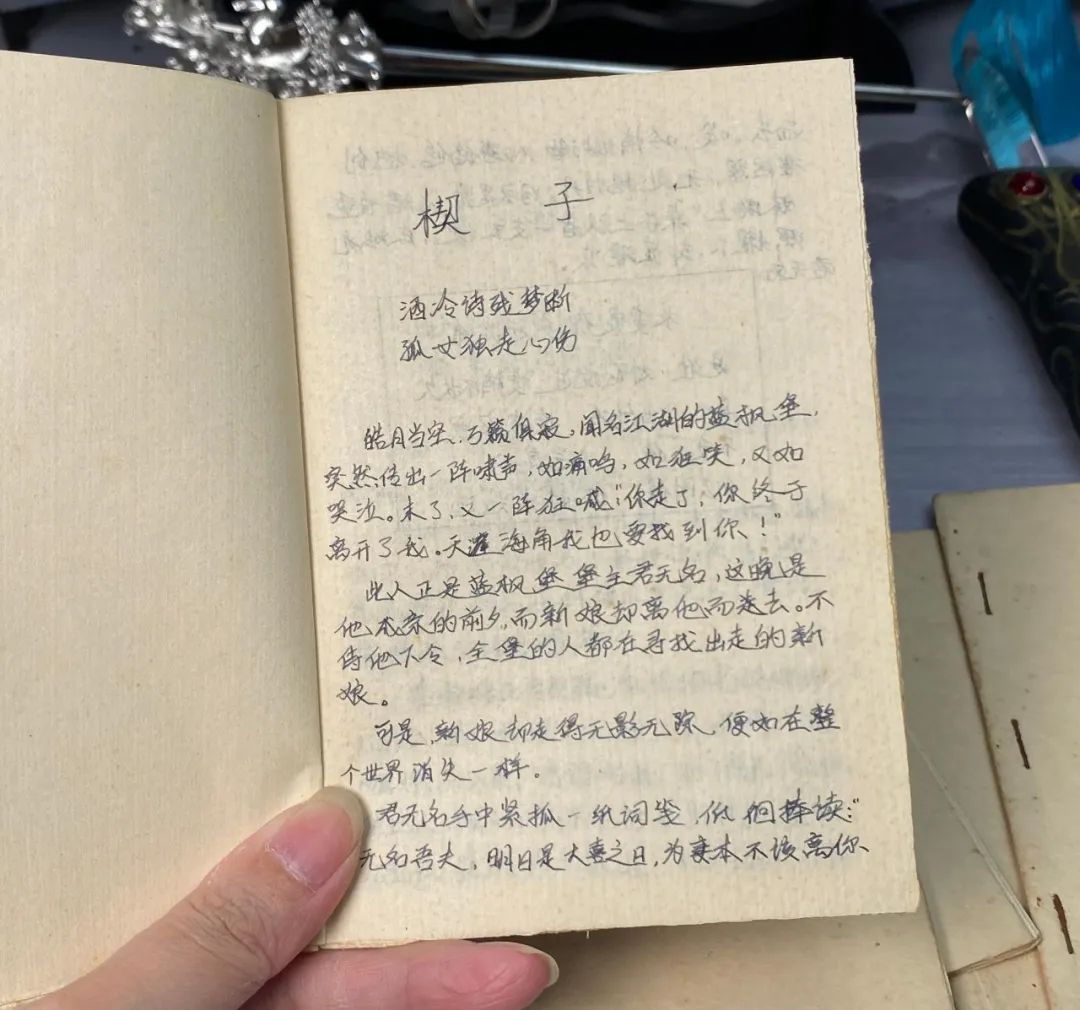 楔 子
酒冷诗残梦断
孤女独走心伤
皓月当空,万籁俱寂,闻名江湖的蓝枫堡,
突然传出一阵啸声,如痛鸣,如狂笑,又如
哭泣。末了,又一阵狂喊:“你走了;你终于
离开了我。天涯海角我也要找到你!”
此人正是蓝枫堡堡主君无名,这晚是
他成亲的前夕,而新娘却离他而去。不
待他下令,全堡的人都在寻找出走的新
娘。
可是,新娘却走得无影无踪,便如在整
个世界消失一样。
君无名手中紧抓一纸词笺,低徊捧读:“
无名吾夫,明日是大喜之日,为妻本不该离你